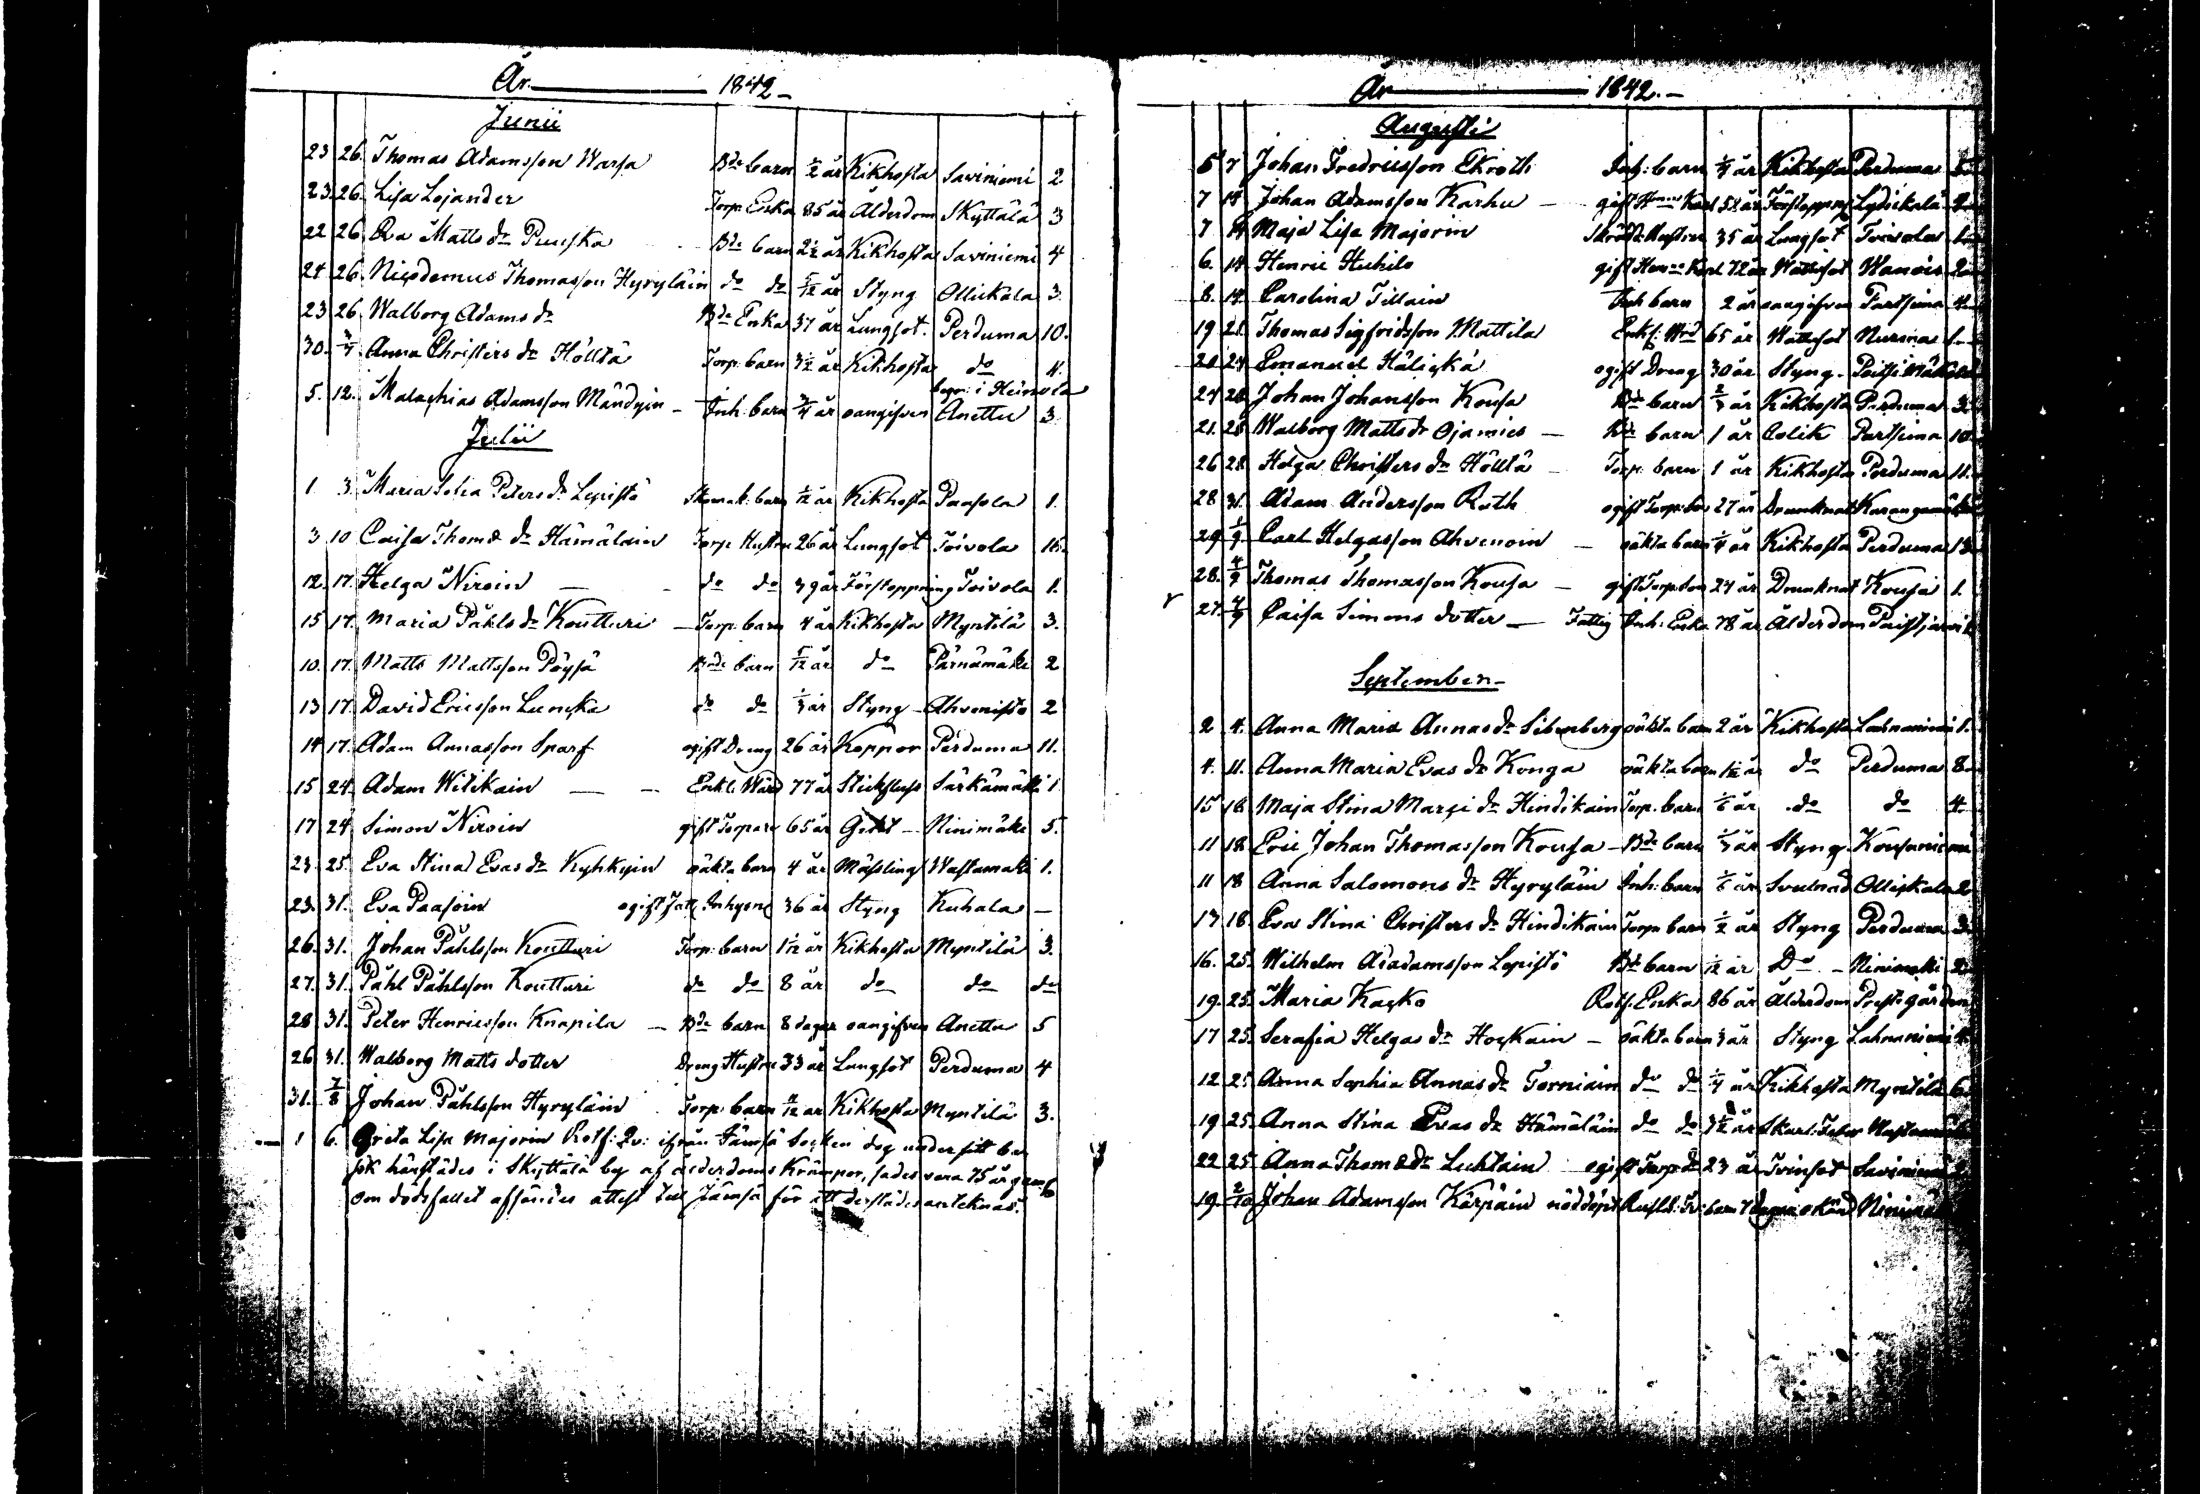 År 1842
Junii
23 26. Thomas Adamsson Warsa Bde barn 1/2 år Kikhosta Saviniemi 2
23. 26. Lisa Lojander Torp: Enka 85 år Ålderdom Skyttälä 3
22 26 Eva Matts dr Puuska Bde barn 2 1/2 år Kikhosta Saviniemi 4
24 26. Nicodemus Thomasson Hyryläin do do 5/12 år Styng Ollikala 3.
23 26 Walborg Adams dr Bde Enka 37 år Lungsot. Perduma 10.
30. 3/7 Anna Christers dr Hölltä Torp: barn 3 1/2 år Kikhosta do 11.
begr: i Heinola
5. 12. Malachias Adamsson Mändyin Inh. barn 3/4 år oangifven Anettu 3
Julii
1 3. Maria Sofia Peters dr Lepistö Skomak: barn 1/12 år Kikhosta Paasola 1.
3 10 Caisa Thomæ dr Hämäläin Torp: Hustru 26 år Lungsot Toivola 16.
12. 17. Helga Niroin do do 39 år Förstoppning Toivola 1.
15 17. Maria Påhls dr Koutturi Torp: barn 4 år Kikhosta Myntilä 3.
10. 17. Matts Mattsson Pöysä Bde barn 5/12 år do Pärnämäki 2
13 17. David Ericsson Luucka do do 1/3 år Styng Ahvenisto 2
14 17. Adam Annasson Sparf ogift Dreng 26 år Koppor Perduma 11.
15 24. Adam Witikain Enkl: Wärd 77 år Stickfluss Särkämäki 1
17 24 Simon Niroin gift Torpare 65 år Gikt Ninimäki 5.
23. 25. Eva Stina Evas dr Kyhkyin oäkta barn 4 år Mässling Wastamäki 1.
23. 31. Eva Paasoin ogift Fatt: Inhyses 36 år Styng Kuhala —
26. 31. Johan Påhlsson Koutturi Torp: barn 1 1/12 år Kikhosta Myntilä 3.
27. 31. Påhl Påhlsson Koutturi do do 8 år do do do
28 31. Peter Henricsson Knapila Bde barn 8 dagar oangifven Anettu 5
26 31. Walborg Matts dotter Dreng Hustru 33 år Lungsot Perduma 4
31. 7/8 Johan Påhlsson Hyryläin Torp: barn 11/12 år Kikhosta Myntilä 3.
1 6. Greta Lisa Majorin Rotf: Qv: ifrån Jämsä Socken dog under sitt be
sök härstädes i Skyttälä by af ålderdoms Krämpor, sades vara 75 år gam̄l
om dödsfallet afsändes attest till Jämsä för att derstädes anteknas.
År 1842.
Augusti
5 7 Johan Fredricsson Ekroth Inh: barn 1/4 år Kikhosta Perduma
7 14 Johan Adamsson Karhu gift Karl 52 år Förstoppng Lydikälä 2
7 14 Maja Lisa Majorin Hustru 35 år Lungsot Toivola 1
6. 14 Henric Huhilo gift Karl 72 år Wattusot Wanois 2
8. 14. Carolina Tillain Inh barn 2 år oangifven Partsima 4.
19 21. Thomas Sigfridsson Mattila Enkl: Wrd 65 år Wattusot Nurmaa 1
20 24 Emanuel Häliskä ogift Dreng 30 år Styng
24 28 Johan Johansson Kousa Bde barn 2/3 år Kikhosta Perduma 3.
21. 28 Walborg Matts dr Ojamies Bde barn 1 år Colik Partsima 10
26 28 Helga Christers dr Hölltä Torp: barn 1 år Kikhosta Perduma 11.
28 31. Adam Andersson Roth ogift Torp: 27 år Drunknat Karangamäki
29 1/9 Carl Helgasson Ahvenoin oäkta barn 1/4 år Kikhosta Perduma 13
28. 4/9 Thomas Thomasson Kousa gift Torpson 24 år Drunknat Kousa 1.
27. 4/9 Caisa Simons dotter Fattig Inh: Enka 78 år Ålderdom Paistjärvi
September
2 4. Anna Maria Annas dr Sibenberg oäkta barn 2 år Kikhosta Lahnaniemi 1.
4. 11. Anna Maria Evas dr Konga oäkta barn 1 1/12 år do Perduma 8
15 18 Maja Stina Marci dr Hindikain Torp. barn 1/6 år do do 4
11 18 Eric Johan Thomasson Kousa Bde barn 1/3 år Styng Kousaniemi
11 18 Anna Salomons dr Hyryläin Inh: barn 1/6 år Svulnad Ollickala 2
17 18 Eva Stina Christers dr Hindikain Torpr barn 1/2 år Styng Perduma 3
16. 25. Wilhelm Adadamsson Lepistö Bde barn 1/12 år Do Ninimäki 2
19. 25. Maria Kacko Rotf. Enka 86 år Ålderdom Prestgården
17 25. Serafia Helgas dr Hockain oäkta barn 3 år Styng Lahnaniemi 4
12 25 Anna Sophia Annas dr Torniain do do 1/4 år Kikhosta Myntilä 6
19 25. Anna Stina Evas dr Hämäläin do do 3 1/2 år Skarl: Feber
22 25 Anna Thomæ dr Luhtain ogift Torp: dr 23 år Tvinsot Saviniemi
19. 2/10 Johan Adamsson Kärpäin nöddöpt barn 7 dagar okänd Ninimäki